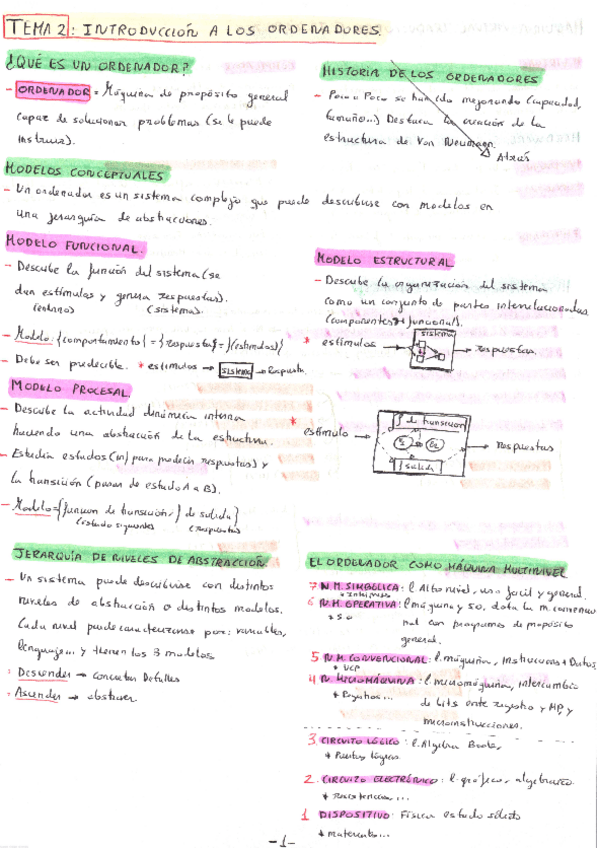 TEMA 2: INTRODUCCIÓN A LOS ORDENADORES
¿QUÉ ES UN ORDENADOR?
- ORDENADOR = Máquina de propósito general
capaz de solucionar problemas (se le puede
instruir).
HISTORIA DE LOS ORDENADORES
- Poco a Poco se han ido mejorando (capacidad,
tamaño...) Destaca la creación de la
estructura de Von Neumann.
Atrás
MODELOS CONCEPTUALES
- Un ordenador es un sistema complejo que puede describirse con modelos en
una jerarquía de abstracciones.
MODELO FUNCIONAL.
- Describe la función del sistema (se
dan estímulos y genera respuestas).
(entorno) (sistema)
- Modelo: {comportamiento} = {respuestas = f(estímulos)}
- Debe ser predecible. * estímulos → sistema → Respuesta
MODELO ESTRUCTURAL
- Describe la organización del sistema
como un conjunto de partes interrelacionadas
(componentes + funcional).
* estímulos → sistema → respuestas
MODELO PROCESAL
- Describe la actividad dinámica interna
haciendo una abstracción de la estructura.
- Estudia estados (in) para predecir respuestas) y
la transición (pasar de estado A a B).
- Modelo = {función de transición, f de salida}
(estado siguiente) (respuestas)
* f de transición
estímulo → E1 E2 → Respuestas
f salida
JERARQUÍA DE NIVELES DE ABSTRACCIÓN
- Un sistema puede describirse con distintos
niveles de abstracción o distintos modelos.
Cada nivel puede caracterizarse por: variables,
lenguaje... y tienen los 3 modelos
· Descender → concretar detalles
· Ascender → abstraer
EL ORDENADOR COMO MÁQUINA MULTINIVEL
7 N M. SIMBÓLICA: l. Alto nivel, uso fácil y general.
6 N. M. OPERATIVA: l. máquina y SO, dota la m. convencio
+ S.O nal con programas de propósito
general.
5 N. M. CONVENCIONAL: l. máquina, Instrucciones + Datos
+ UCP
4 N. MICROMÁQUINA: l. micromáquina, intercambio
+ Registros... de bits entre registro y MP, y
microinstrucciones.
3. CIRCUITO LÓGICO: l. Algebra Boole,
+ Puertas lógicas
2. CIRCUITO ELECTRÓNICO: l. gráfico, algebraico
+ resistencias...
1 DISPOSITIVO: Física estado sólido
+ materiales...
-1-